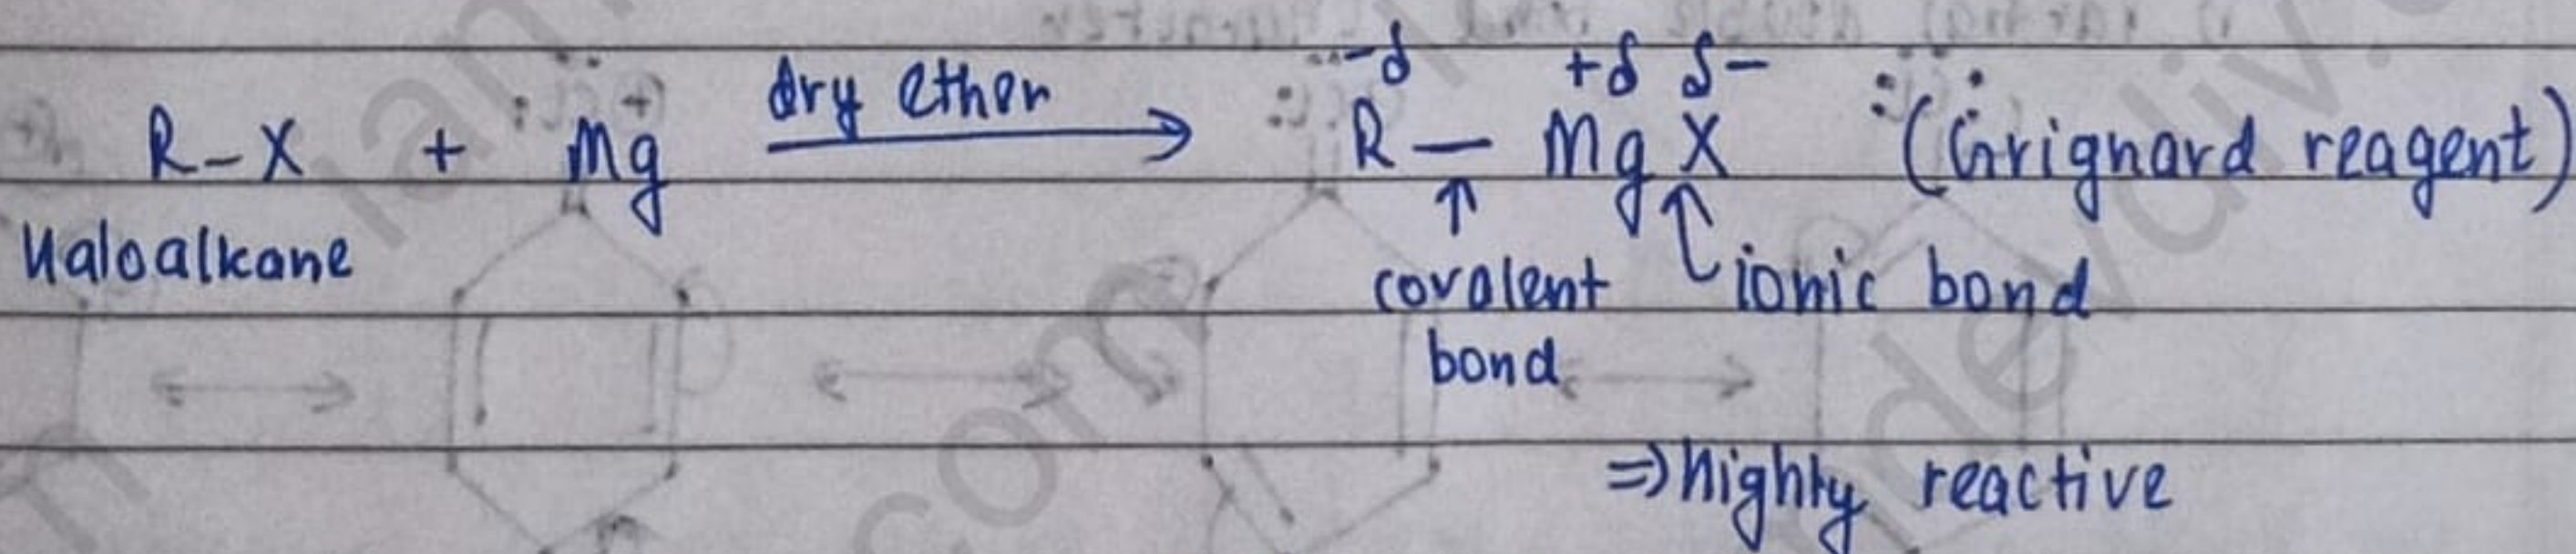 -δ +δ δ-
R-X + Mg dry ether → R — MgX (Grignard reagent)
Haloalkane
↑ covalent bond ↑ ionic bond
⇒ highly reactive